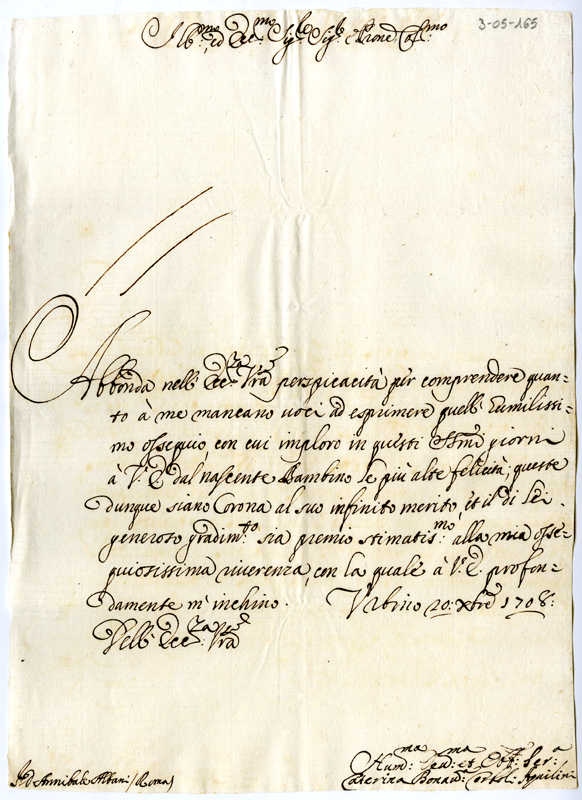 3-05-165
Ill:mo ed Ecc:mo Sig:re Sig:re Prone Col:mo
Abbonda nell' Ecc:za Vra perspicacità per comprendere quan=
to à me mancano voci ad esprimere quell' Umilissi=
mo ossequio, con cui imploro in questi SSmi giorni
à V. E. dal nascente Bambino le più alte felicità; queste
dunque siano Corona al suo infinito merito, et il di Lei
generoso gradim:to sia premio stimatis:mo alla mia osse=
quiosissima riverenza, con la quale à V. E. profon=
damente m' inchino. Urbino 20: Xbre 1708:
Dell' Ecc:za Vra
Hum:ma Dev:ma et Obl: Ser:a
Caterina Bonav: Aquilini
D Annibale Albani / Roma)